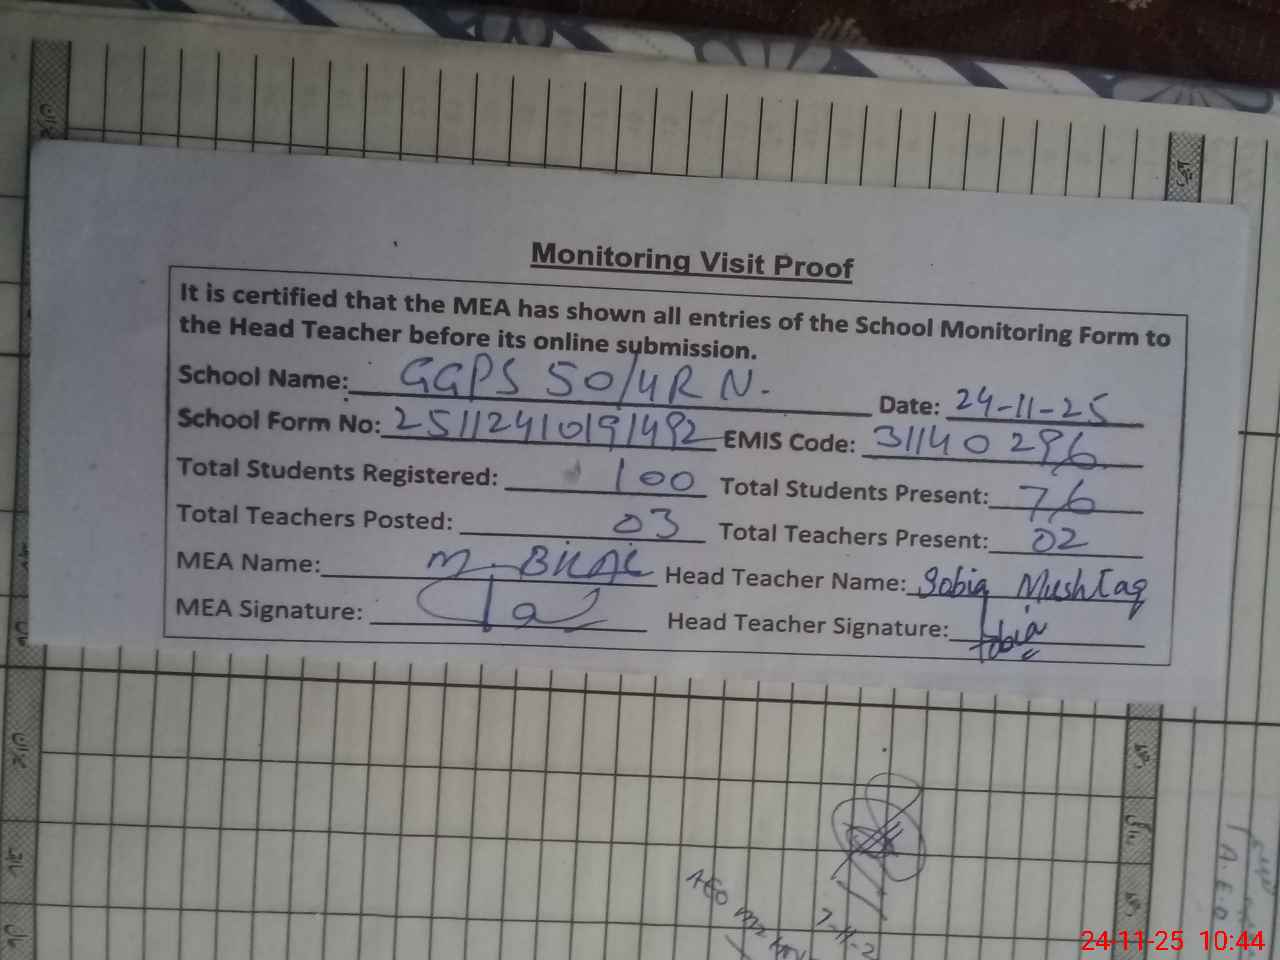 Monitoring Visit Proof
It is certified that the MEA has shown all entries of the School Monitoring Form to
the Head Teacher before its online submission.
School Name: GGPS 50/4R N. Date: 24-11-25
School Form No: 25112410191492 EMIS Code: 31140296
Total Students Registered: 100 Total Students Present: 76
Total Teachers Posted: 03 Total Teachers Present: 02
MEA Name: M. BILAL Head Teacher Name: Sobia Mushtaq
MEA Signature: Head Teacher Signature: Sobia
AEO
7-11-2
A.E.O
24-11-25 10:44